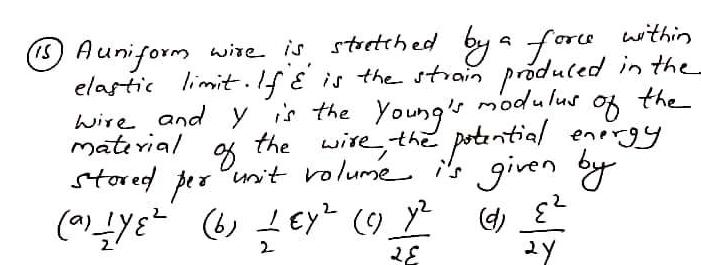 (15) A uniform wire is stretched by a force within
elastic limit. If 'ε' is the strain produced in the
wire and y is the Young's modulus of the
material of the wire, the potential energy
stored per unit volume is given by
(a) 1/2 yε² (b) 1/2 εy² (c) y²/2ε (d) ε²/2y